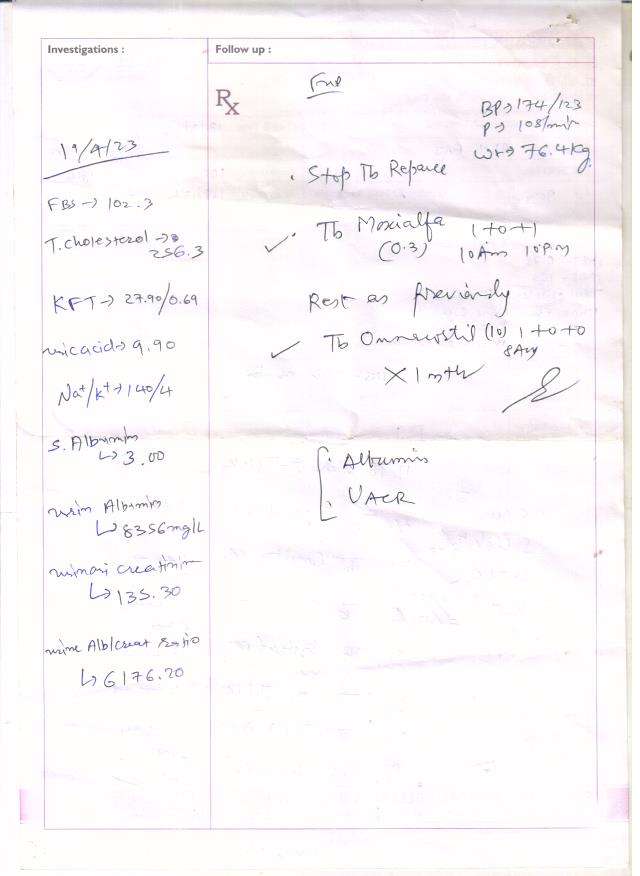 Investigations :
Follow up :
Rx
BP→174/123
P→ 108/min
wt→ 76.4kg
19/4/23
FBS→ 102.3
T. cholesterol→
256.3
KFT→ 27.90/0.69
uric acid→ 9.90
Na+/K+→140/4
S. Albumin
↳ 3.00
urin Albumin
↳ 8356mg/L
urinari creatinin
↳ 135.30
urine Alb/creat ratio
↳ 6176.20
. Stop Tb Reparee
✓ . Tb Moxialfa 1+0+1
(0.3) 10Am 10P.m
Rest as previously
✓ Tb Omnacortil (10) 1+0+0
8Am
X 1 mth
. Albumin
. UACR